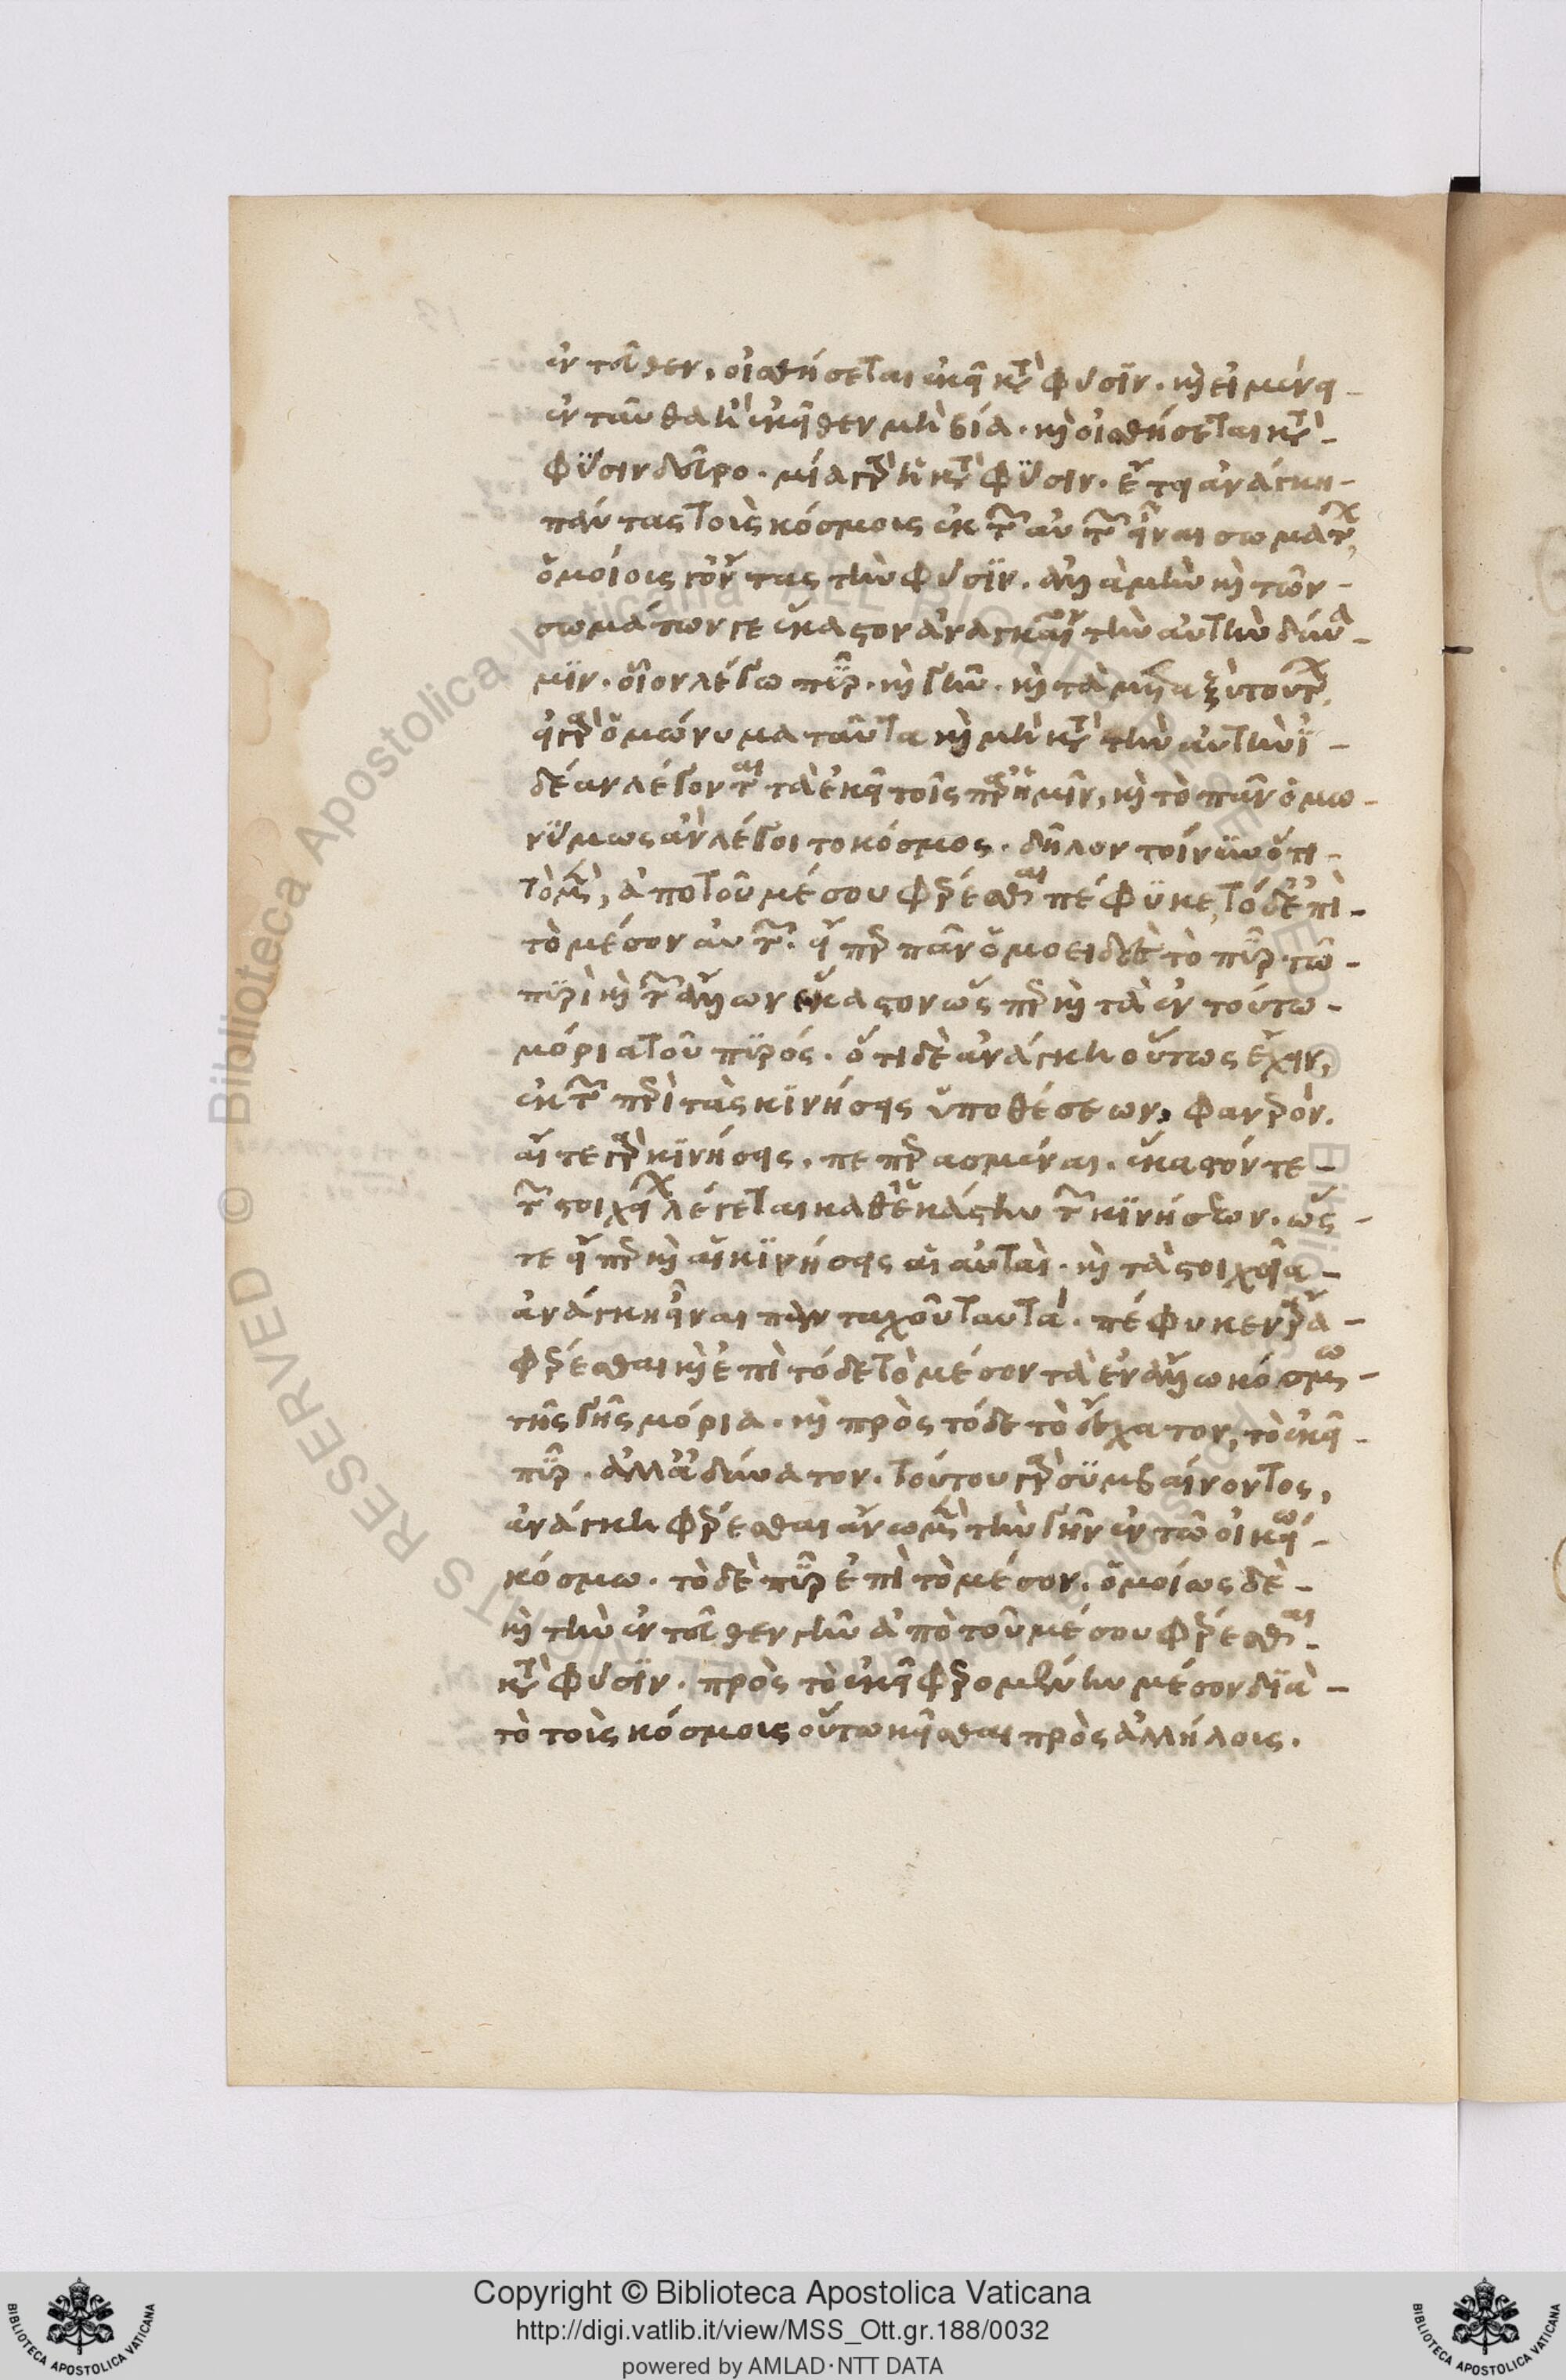 ἐντεῦθεν, οἰσθήσεται ἐκεῖ κατὰ φύσϊν. καὶ εἰ μένει
ἐνταῦθα ἢ ἐκεῖθεν μὴ βία. καὶ οἰσθήσεται κατὰ
φύσιν δεῦρο. μία γὰρ ἡ κατὰ φύσιν. ἔτι ἀνάγκη
πάντας τοὺς κόσμους ἐκ τῶν αὐτῶν εἶναι σωμάτων,
ὁμοίους γ' ὄντας τὴν φύσϊν. ἀλλὰ μὴν καὶ τῶν
σωμάτων γε ἕκαστον ἀναγκαῖον τὴν αὐτὴν δύνα
μϊν. οἷον λέγω πῦρ. καὶ γῆν. καὶ τὰ μεταξὺ τούτων.
εἰ γὰρ ὁμώνυμα ταῦτα καὶ μὴ κατὰ τὴν αὐτὴν ἰ
δέαν λέγονται τὰ ἐκεῖ τοῖς παρ' ἡμῖν, καὶ τὸ πᾶν ὁμω
νύμως ἂν λέγοιτο κόσμος. δῆλον τοίνυν ὅτι
τὸ μὲν, ἀπὸ τοῦ μέσου φέρεσθαι πέφυκε, τὸ δ' ἐπὶ
τὸ μέσον αὐτῶν. εἰ περ πᾶν ὁμοειδὲς τὸ πῦρ τῶ
πυρὶ καὶ τῶν ἄλλων ἕκαστον ὥς περ καὶ τὰ ἐν τούτω
μόρια τοῦ πυρός. ὅτι δὲ ἀνάγκη οὕτως ἔχειν,
ἐκ τῶν περὶ τὰς κινήσεις ὑποθέσεων, φανερόν.
αἵ τε γὰρ κινήσεις, πεπερασμέναι. ἕκαστόν τε
τῶν στοιχείων λέγεται καθ' ἑκάστην τῶν κινήσεων. ὥς
τε εἴ περ καὶ αἱ κινήσεις αἱ αὐταὶ. καὶ τὰ στοιχεῖα
ἀνάγκη εἶναι πανταχοῦ ταυτά. πέφυκεν ἄρα
φέρεσθαι καὶ ἐπὶ τόδε τὸ μέσον τὰ ἐν ἄλλω κόσμω
τῆς γῆς μόρια. καὶ πρὸς τόδε τὸ ἔσχατον, τὸ ἐκεῖ
πῦρ. ἀλλ' ἀδύνατον. τούτου γὰρ συμβαίνοντος,
ἀνάγκη φέρεσθαι ἄνω μὲν τὴν γῆν ἐν τῶ οἰκείω
κόσμω. τὸ δὲ πῦρ ἐπὶ τὸ μέσον. ὁμοίως δὲ
καὶ τὴν ἐντεῦθεν γῆν ἀπὸ τοῦ μέσου φέρεσθαι
κατὰ φύσϊν. πρὸς τὸ ἐκεῖ φερομένην μέσον διὰ
τὸ τοὺς κόσμους οὕτω κεῖσθαι πρὸς ἀλλήλους.
Copyright © Biblioteca Apostolica Vaticana
http://digi.vatlib.it/view/MSS_Ott.gr.188/0032
powered by AMLAD·NTT DATA